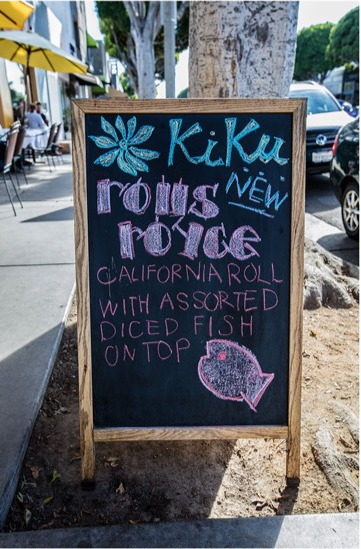 KiKu
NEW
rolls
royce
CALIFORNIA ROLL
WITH ASSORTED
DICED FISH
ON TOP